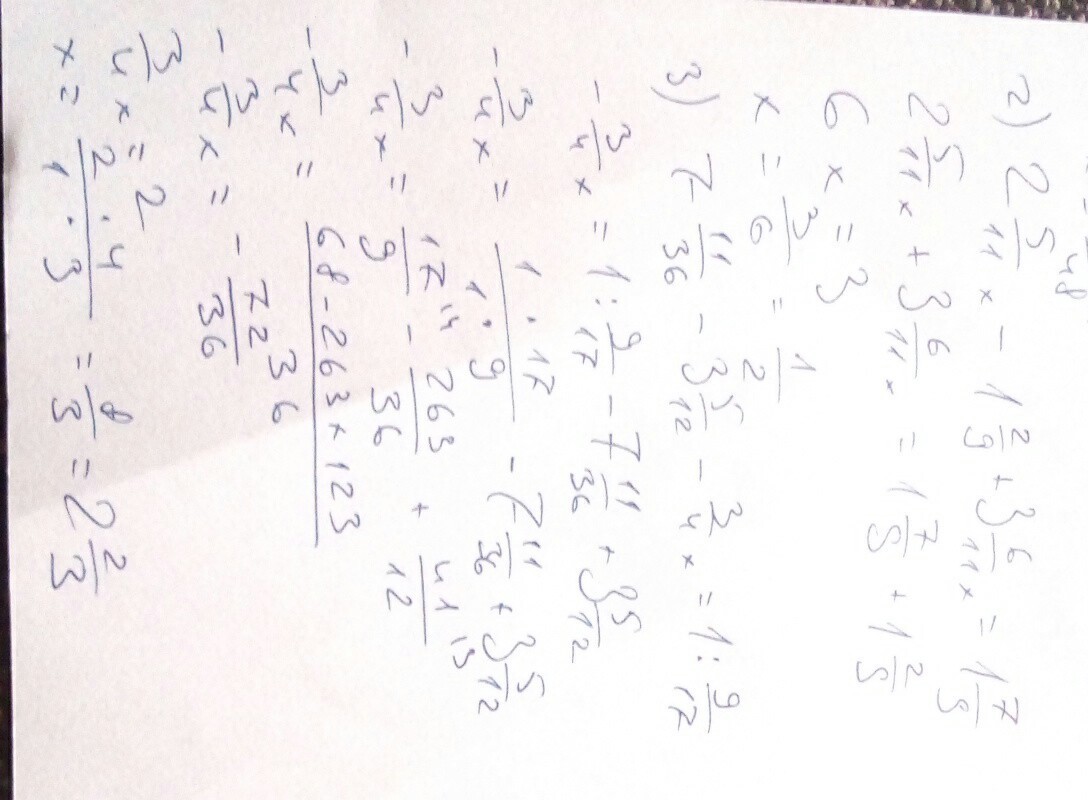 - 48
2) 2 5/11 x - 1 2/9 + 3 6/11 x = 1 7/9
2 5/11 x + 3 6/11 x = 1 7/9 + 1 2/9
6x = 3
x = 3/6 = 1/2
3) 7 11/36 - 3 5/12 - 3/4 x = 1 : 9/17
- 3/4 x = 1 : 9/17 - 7 11/36 + 3 5/12
- 3/4 x = 1 · 17/1 · 9 - 7 11/36 + 3 5/12
- 3/4 x = 17/9 - 263/36 + 41/12
- 3/4 x = 68 - 263 + 123/36
- 3/4 x = - 72/36
3/4 x = 2
x = 2 · 4/1 · 3 = 8/3 = 2 2/3